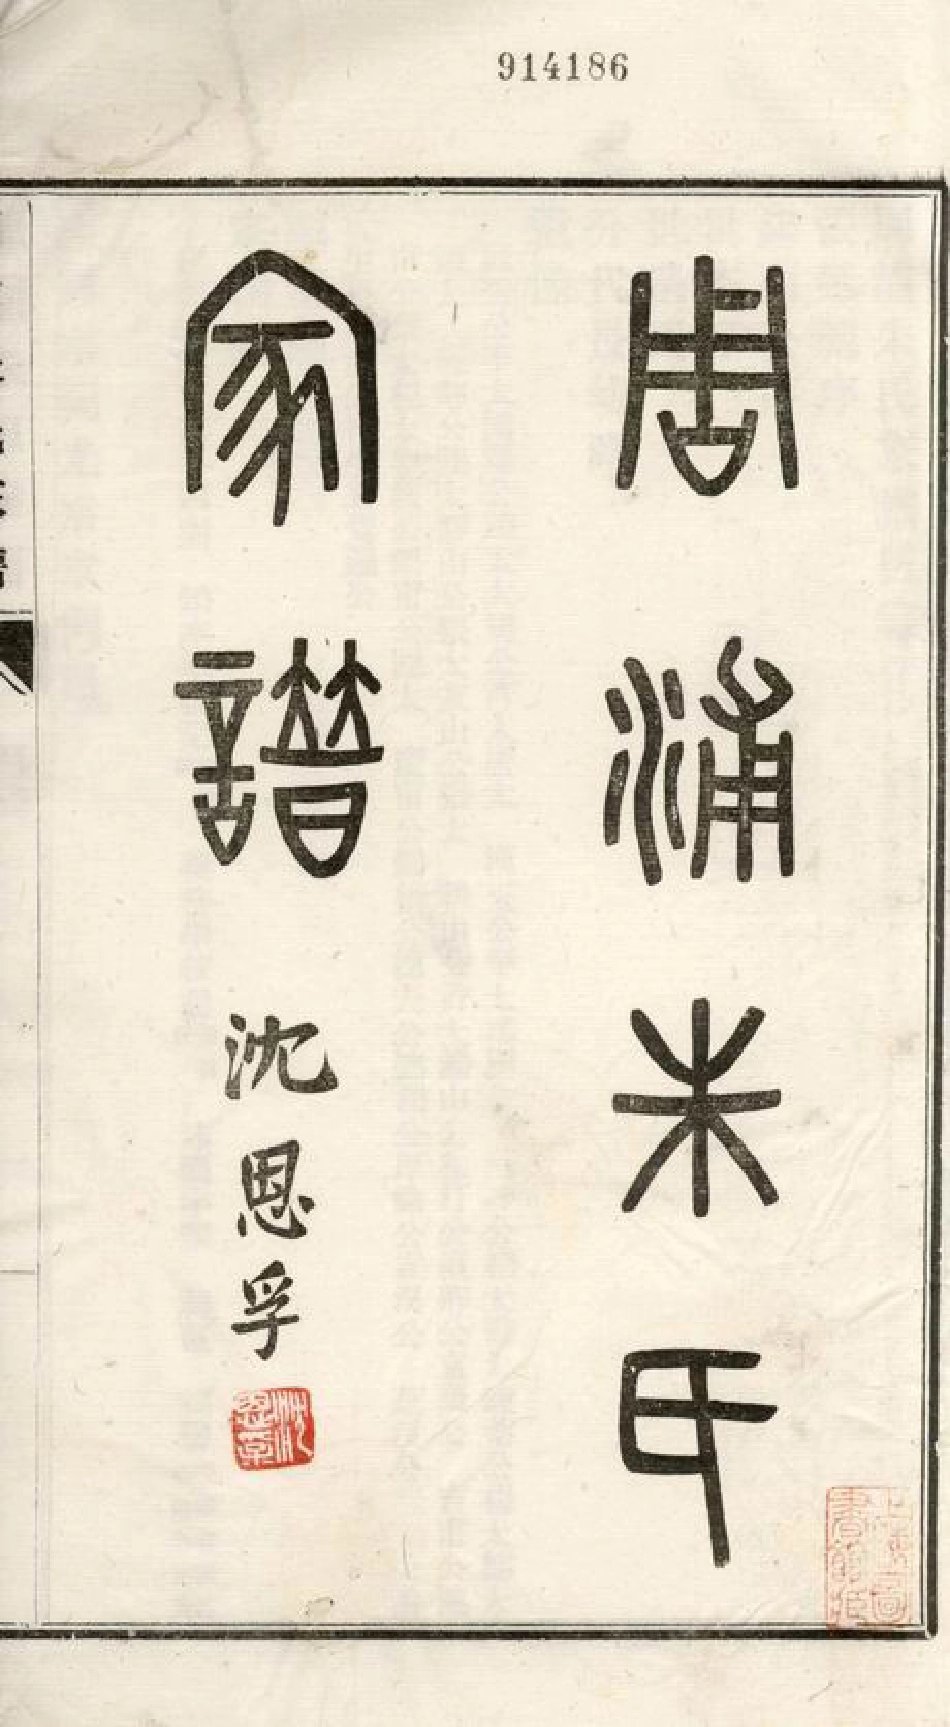 914186
周浦朱氏
家譜
沈恩孚